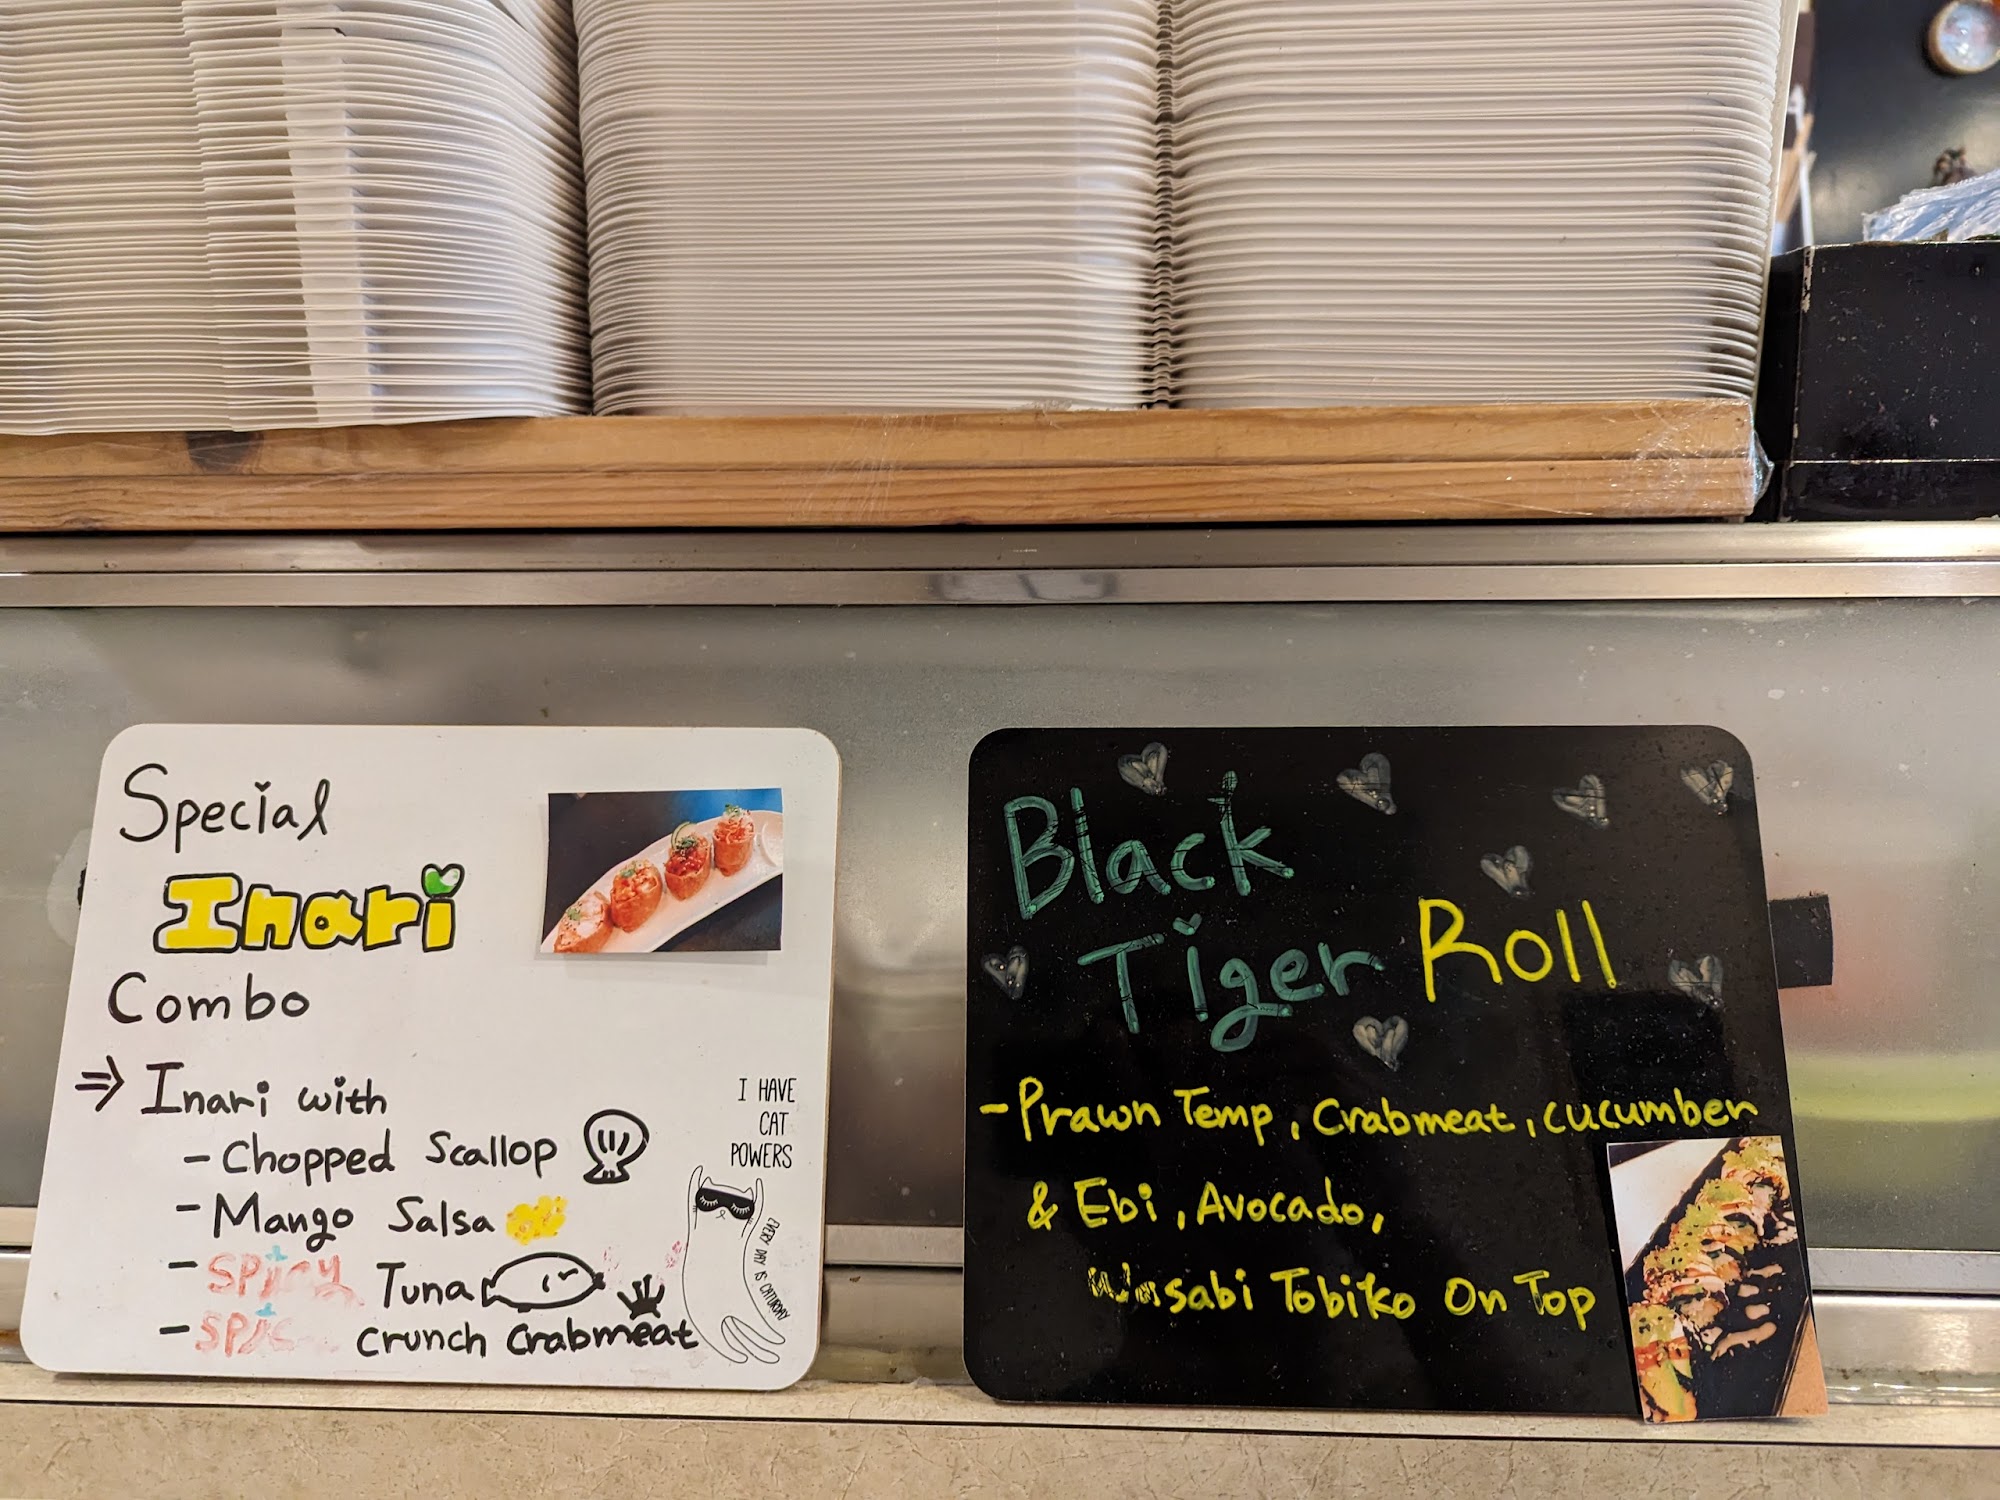 Special
Inari
Combo
⇒ Inari with
- Chopped Scallop
- Mango Salsa
- Spicy Tuna
- Spic Crunch Crabmeat
I HAVE
CAT
POWERS
EVERY DAY IS CATURDAY
Black
Tiger Roll
- Prawn Temp, Crabmeat, cucumber
& Ebi, Avocado,
Wasabi Tobiko On Top